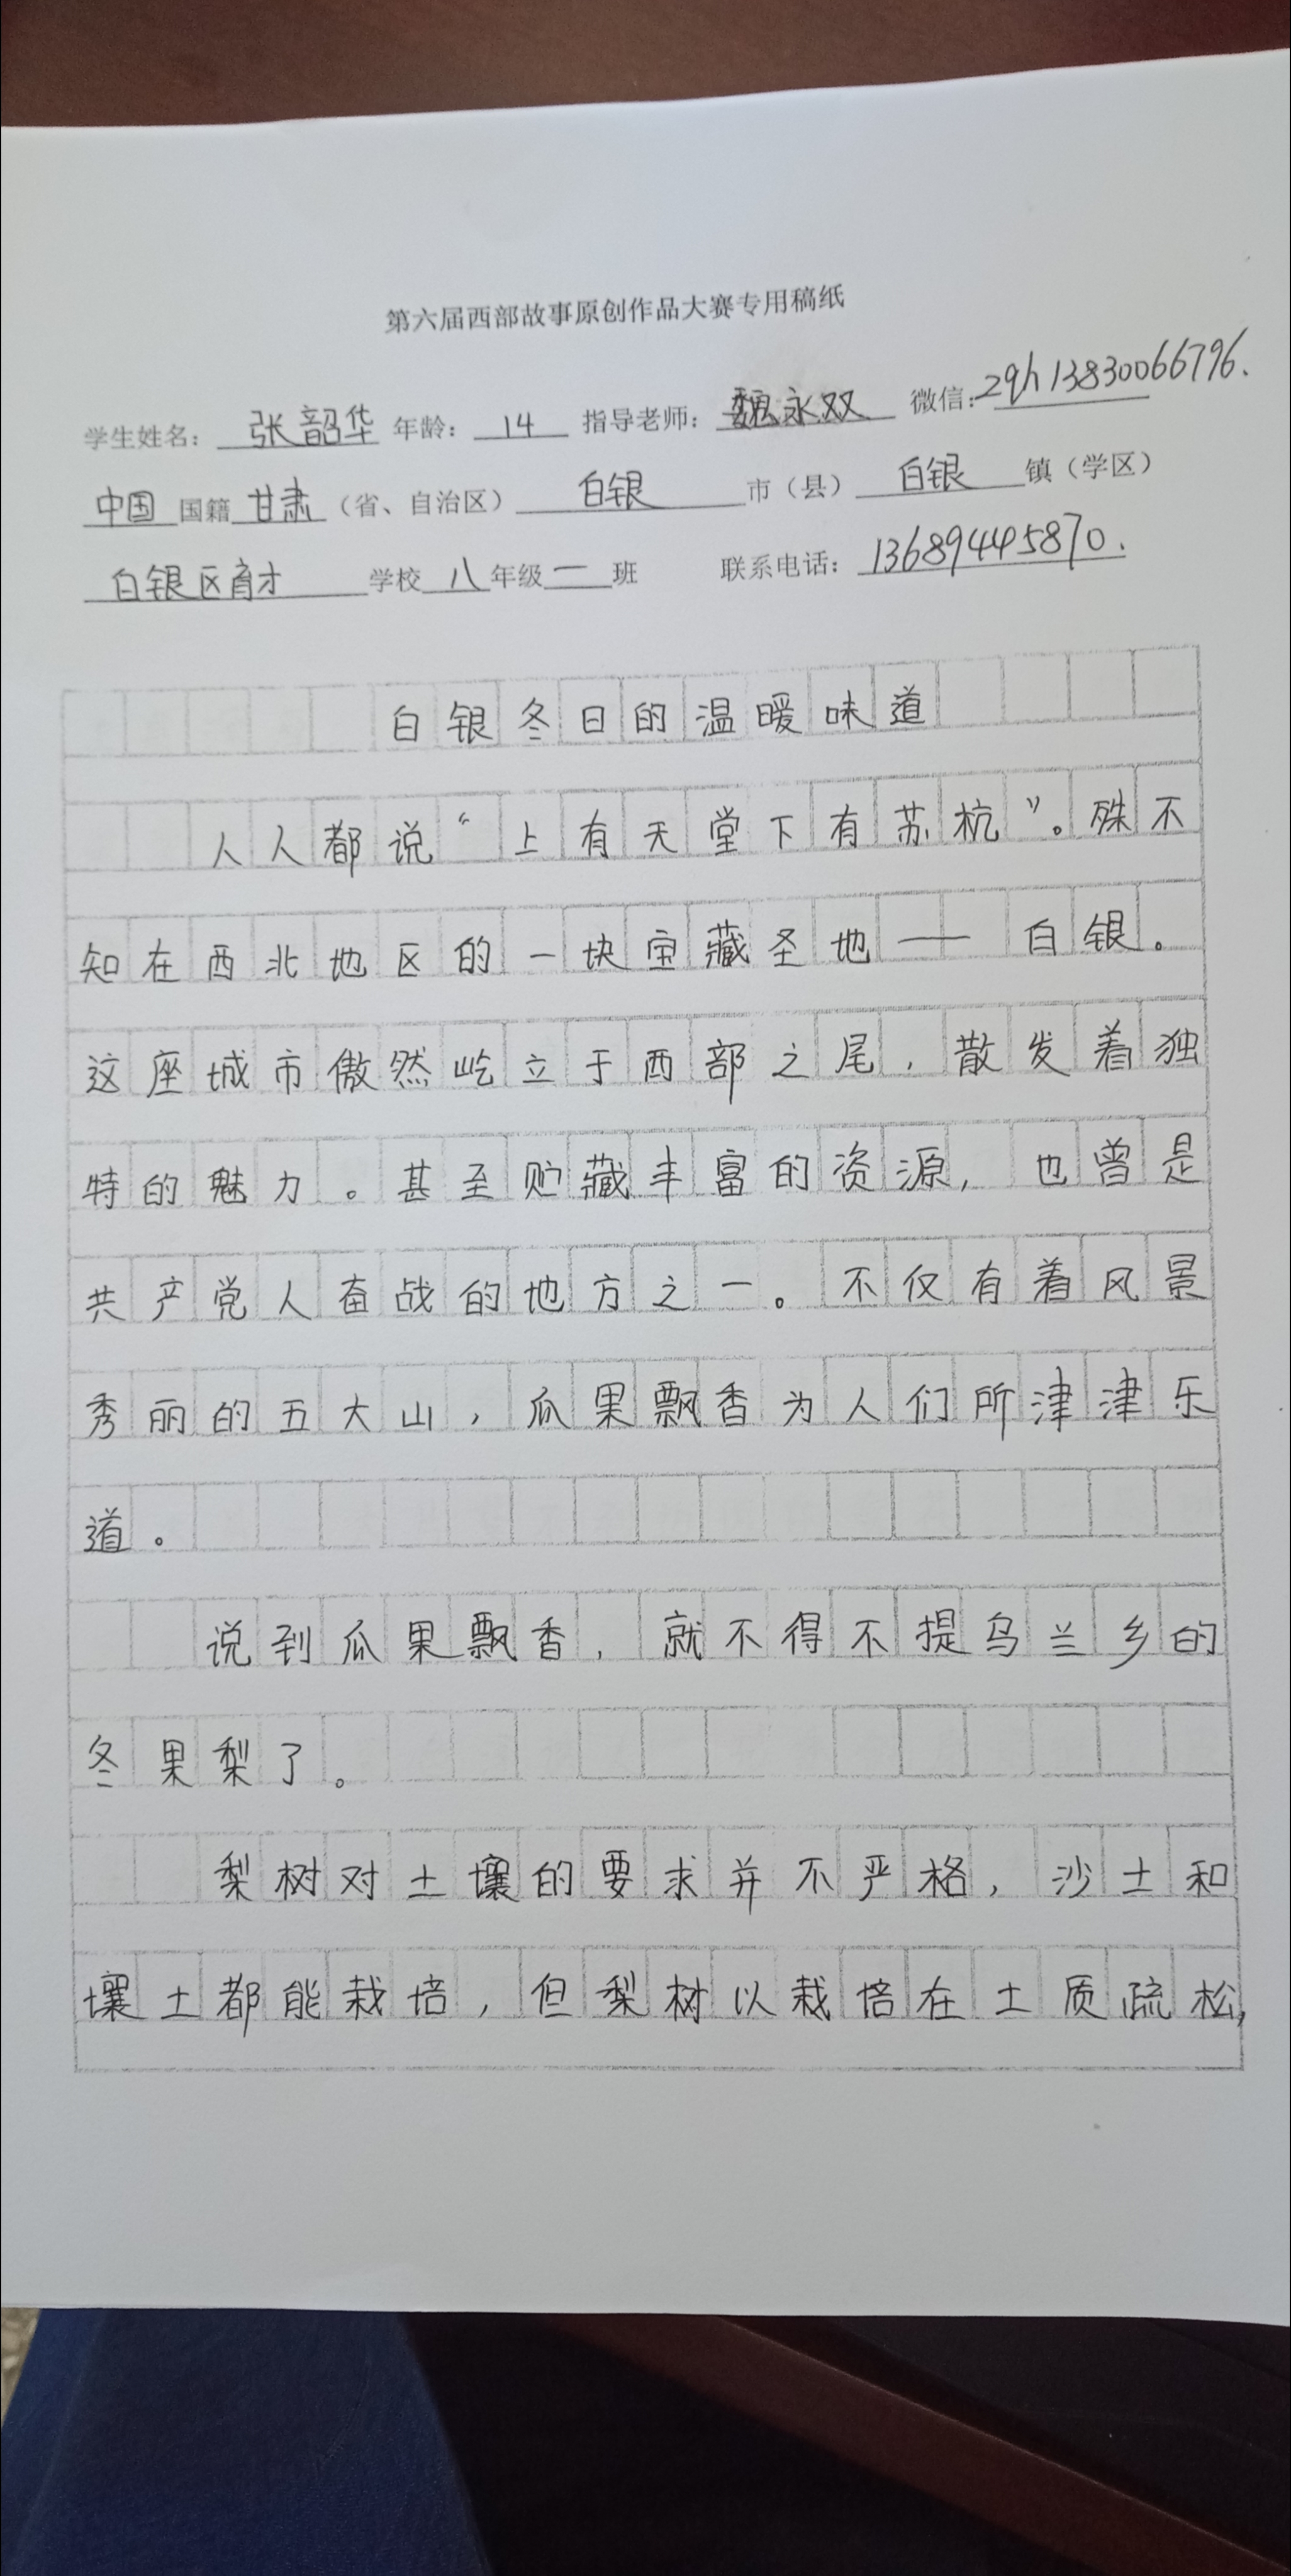 第六届西部故事原创作品大赛专用稿纸
学生姓名：张韶华 年龄：14 指导老师：魏永双 微信：zqh13830066796.
中国国籍甘肃（省、自治区）白银市（县）白银镇（学区）
白银区育才学校八年级一班 联系电话：13689445870.
白银冬日的温暖味道
人人都说“上有天堂下有苏杭”。殊不
知在西北地区的一块宝藏圣地——白银。
这座城市傲然屹立于西部之尾，散发着独
特的魅力。甚至贮藏丰富的资源，也曾是
共产党人奋战的地方之一。不仅有着风景
秀丽的五大山，瓜果飘香为人们所津津乐
道。
说到瓜果飘香，就不得不提乌兰乡的
冬果梨了。
梨树对土壤的要求并不严格，沙土和
壤土都能栽培，但梨树以栽培在土质疏松，